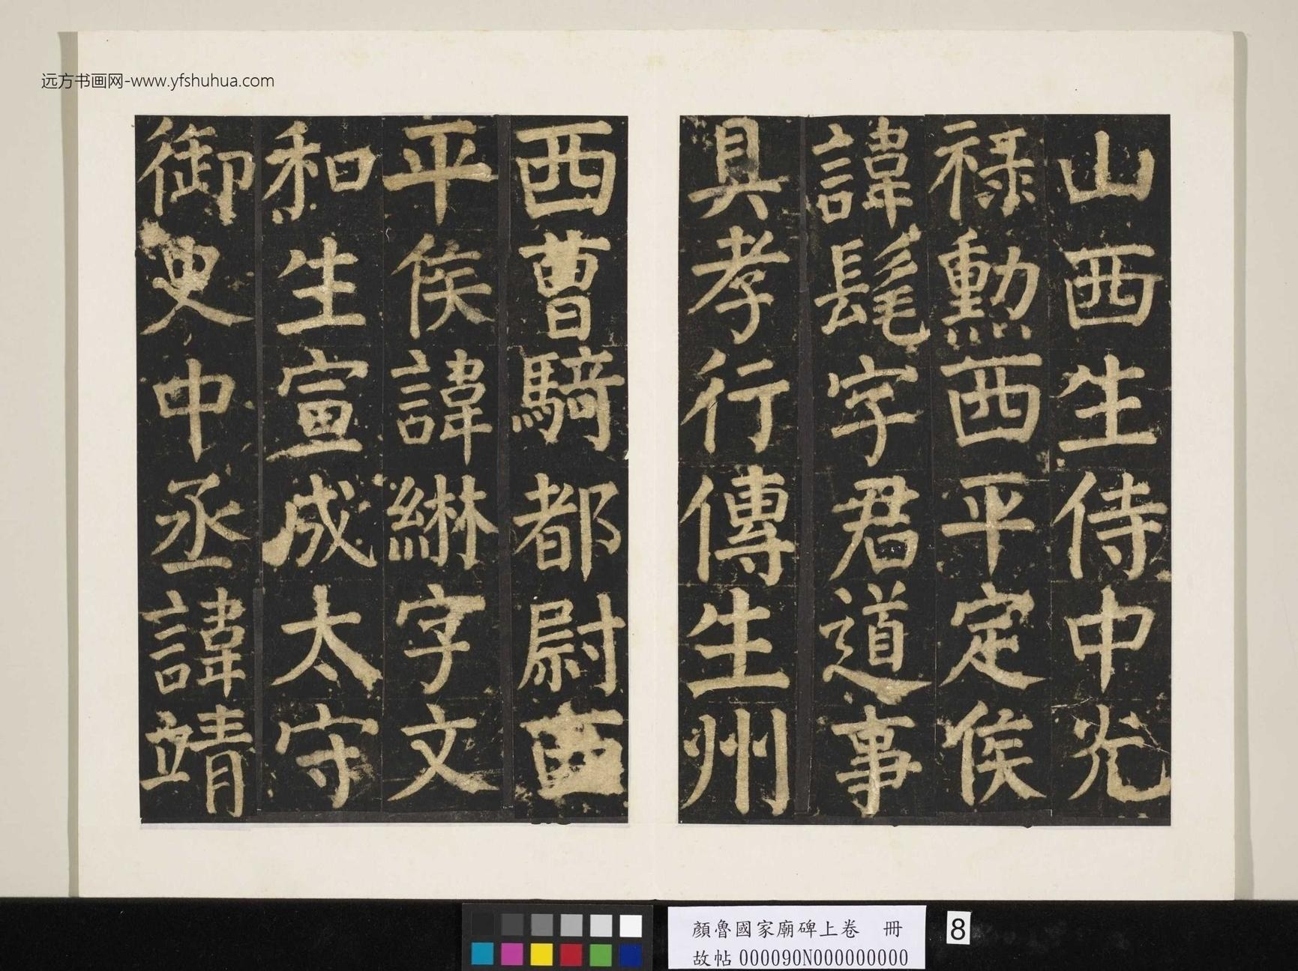 远方书画网-www.yfshuhua.com
山西生侍中光
禄勳西平定侯
諱髦字君道事
具孝行傳生州
西曹騎都尉西
平侯諱綝字文
和生宣成太守
御史中丞諱靖
顏魯國家廟碑上卷 冊
故帖000090N000000000
8